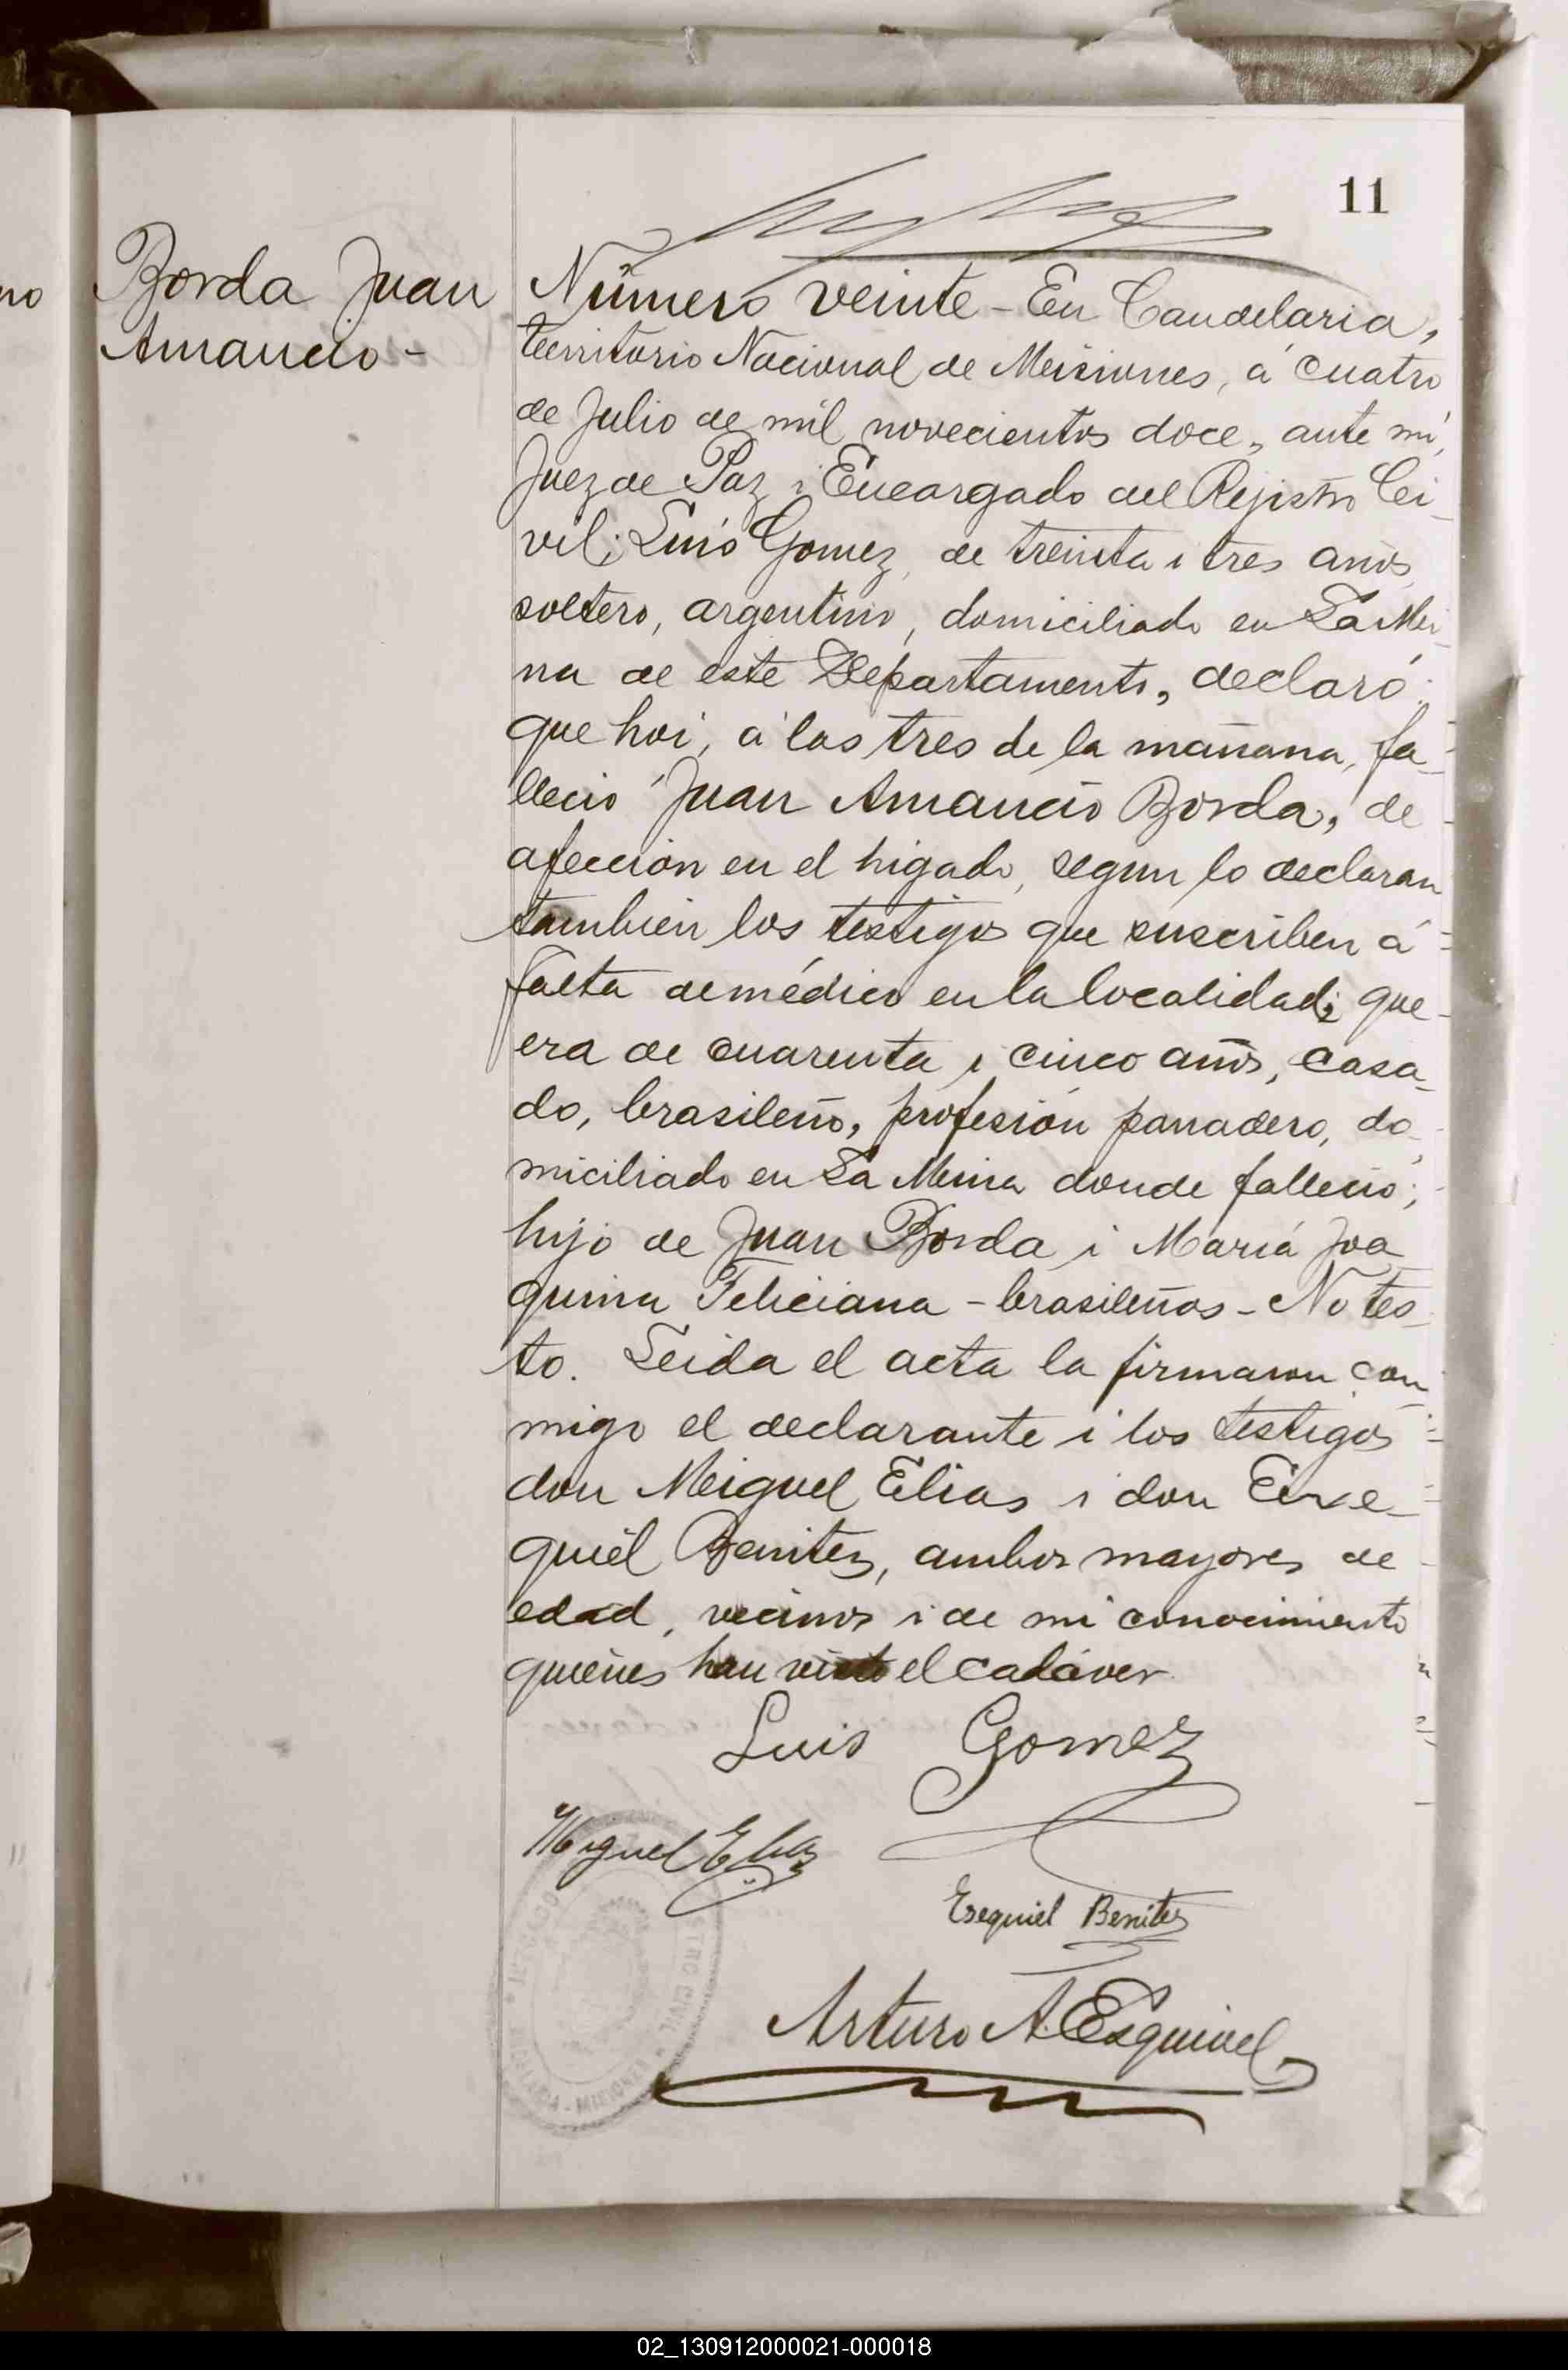 11
Borda Juan
Amancio -
Número veinte - En Candelaria,
territorio Nacional de Misiones, á cuatro
de Julio de mil novecientos doce, ante mí,
Juez de Paz i Encargado del Rejistro Ci-
vil; Luis Gomez, de treinta i tres años,
soltero, argentino, domiciliado en La Mi-
na de este Departamento, declaró:
que hoi, á las tres de la mañana, fa-
lleció Juan Amancio Borda, de
afección en el higado, segun lo declaran
tambien los testigos que suscriben á
falta de médico en la localidad; que
era de cuarenta i cinco años, casa-
do, brasileño, profesión panadero, do-
miciliado en La Mina donde falleció;
hijo de Juan Borda i María Joa
quina Feliciana - brasileños - No tes-
to. Leida el acta la firmaron con
migo el declarante i los testigos
don Miguel Elias i don Exe-
quiel Benitez, ambos mayores de
edad, vecinos i de mi conocimiento
quienes han visto el cadáver.
Luis Gomez
Miguel Elias
Esequiel Benitez
Arturo A. Esquivel
JUZGADO
REGISTRO CIVIL
MISIONES
no
02_130912000021-000018